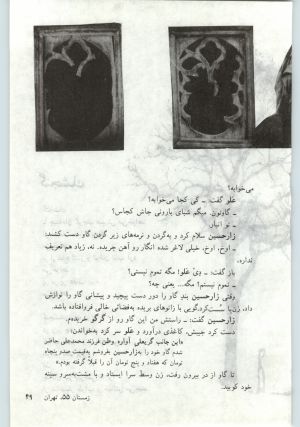 می‌خوابه؟
علو گفت: ـ کی کجا می‌خوابه؟
ـ گاوتون. میگم شبای بارونی جاش کجاس؟
ـ تو انبار.
زارحسین سلام کرد و به‌گردن و نرمه‌های زیر گردن گاو دست کشید:
ـ اوخ، اوخ، خیلی لاغر شده انگار رو آهن چریده. نه، زیاد هم تعریف
نداره.
باز گفت: ـ دِیْ علو! مگه تموم نیستی؟
ـ تموم نیستم! مگه... یعنی چه؟
وقتی زارحسین بند گاو را دور دست پیچید و پیشانی گاو را نوازش
داد، زن با زانوهای بریده به‌فضائی خالی فروافتاده باشد.
زارحسین گفت: ـ راستش من این گاو رو از گرگو خریده‌م.
دست کرد جیبش، کاغذی درآورد و علو سر کرد به‌خواندن:
«این جانب گریعلی آواره، وطن فرزند محمدعلی حاضر
شدم گاو خود را به‌زارحسین بفروشم به‌قیمت صد پنجاه
تومان که هفتاد و پنج تومان آن را قبلاً گرفته بودم.»
تا گاو از در بیرون رفت، زن وسط سرا ایستاد و با مشت به‌سر و سینهٔ
خود کوبید.
زمستان ۵۵، تهران
۴۹